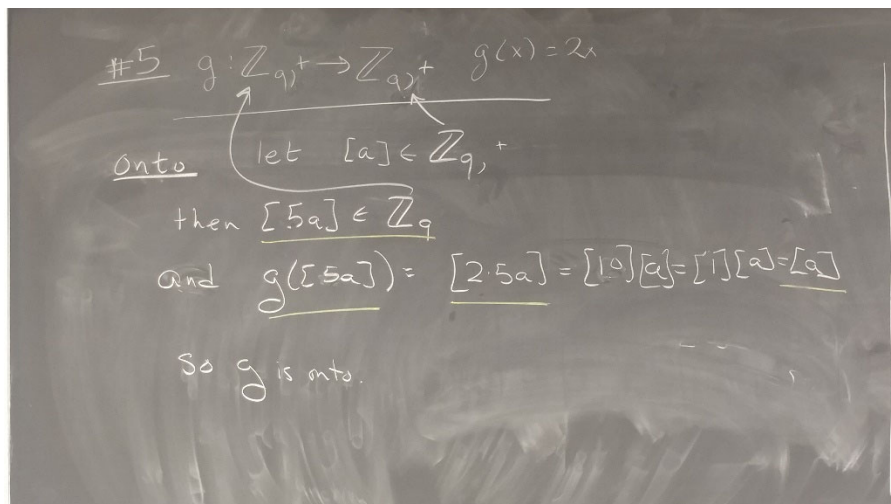 #5 g: ℤ9,+ → ℤ9,+ g(x) = 2x
onto let [a] ∈ ℤ9,+
then [5a] ∈ ℤ9
and g([5a]) = [2·5a] = [10][a] = [1][a] = [a]
So g is onto.